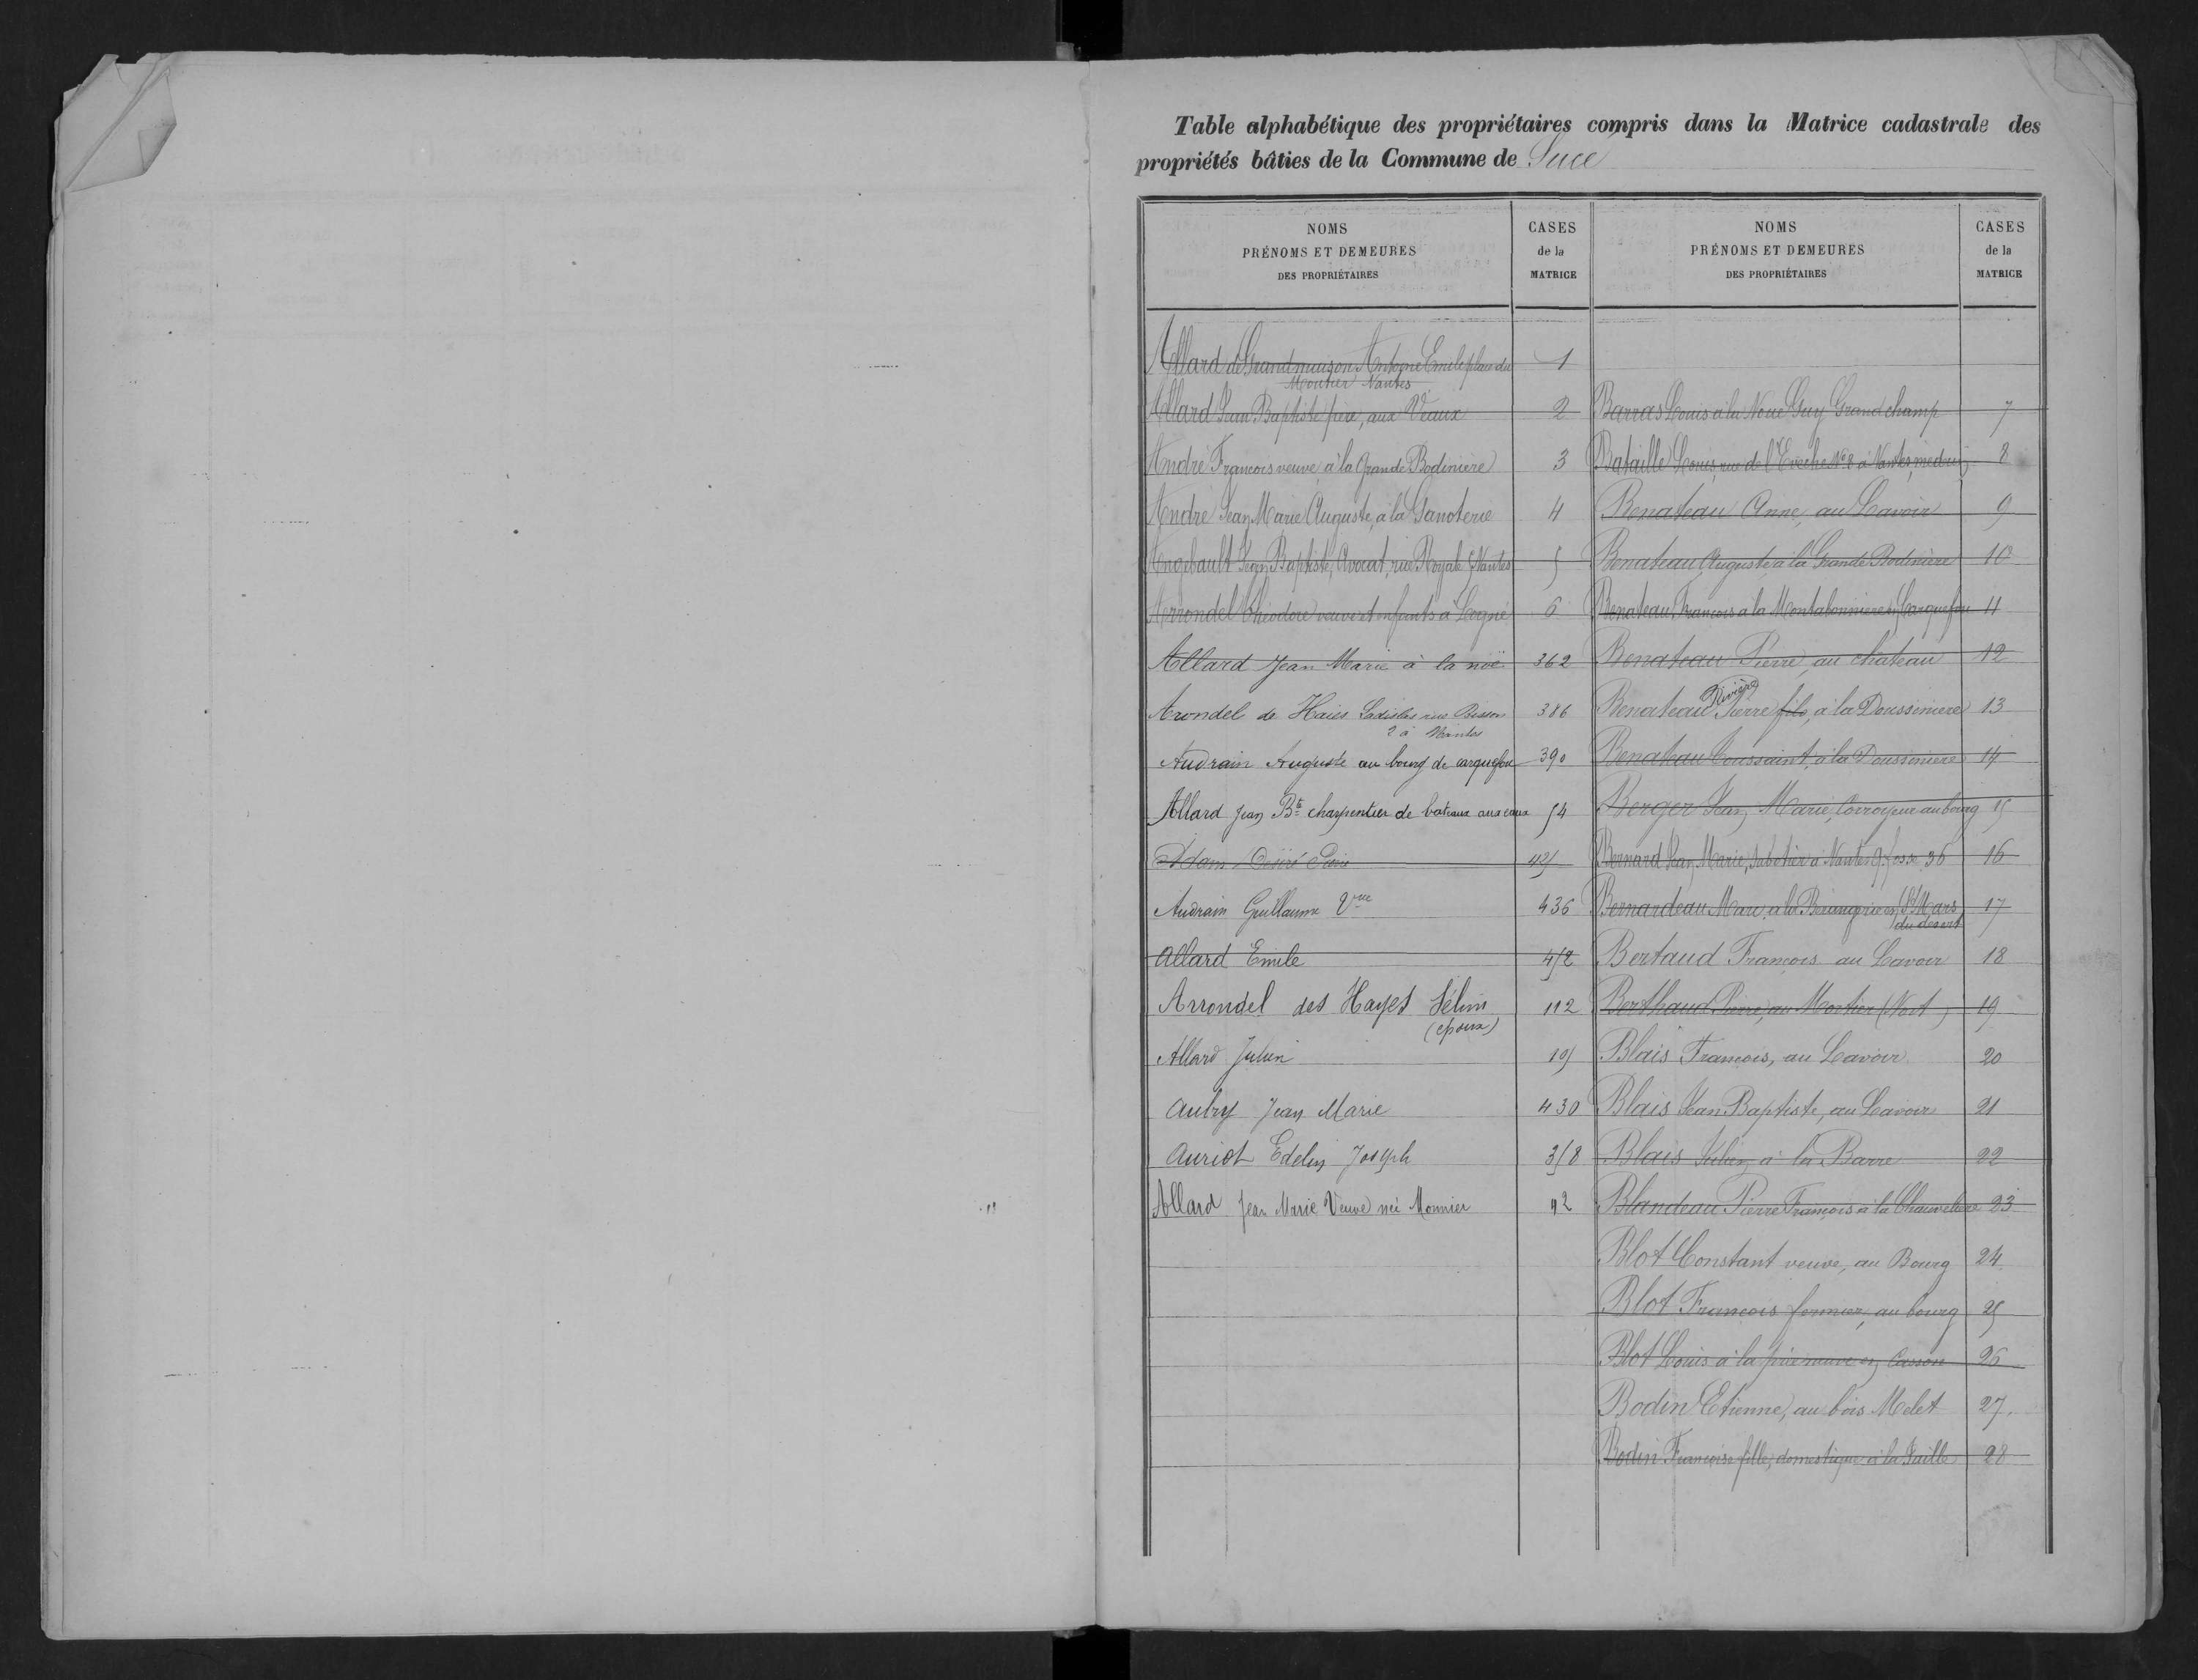 Table alphabétique des propriétaires compris dans la Matrice cadastrale des
propriétés bâties de la Commune de Sucé
NOMS
PRÉNOMS ET DEMEURES
DES PROPRIÉTAIRES
CASES
de la
MATRICE
Allard de Grandmaison Antoine Emile place du 1
Moutier Nantes
Allard Jean Baptiste père, aux Veaux 2
André François veuve, à la Grande Bodinière 3
André Jean Marie Auguste, à la Ganoterie 4
Angebault Jean Baptiste, Avocat, rue Royale 5 Nantes 5
Arrondel Théodore veuve et enfants à Logné 6
Allard Jean Marie à la noë 362
Arondel de Haies Ladislas rue Bisson 386
2 à Nantes
Audrain Auguste au bourg de carquefou 390
Allard Jean Bte charpentier de bateaux aux eaux 54
Adam Désiré 425
Audrain Guillaume Vve 436
Allard Emile 452
Arrondel des Hayes Sélim 112
(époux)
Allard Julien 105
Aubry Jean Marie 430
Auriot Edelin Joseph 358
Allard Jean Marie Veuve née Monnier 92
NOMS
PRÉNOMS ET DEMEURES
DES PROPRIÉTAIRES
CASES
de la
MATRICE
Barras Louis à la Noue Guy Grandchamp 7
Bataille Louis, rue de l'Evêché No 8 à Nantes, médecin 8
Benateau Anne, au Lavoir 9
Benateau Auguste, à la Grande Bodinière 10
Benateau François à la Montabonniere en Carquefou 11
Benateau Pierre, au chateau 12
Rivière
Benateau Pierre fils, à la Doussiniere 13
Benateau Toussaint, à la Doussiniere 14
Berger Jean Marie, Corroyeur au bourg 15
Bernard Jean Marie, Sabotier à Nantes q. fosse 36 16
Bernardeau Marc, à la Berangerie en St Mars 17
du desert
Bertaud François au Lavoir 18
Berthaud Pierre, au Mortier (Nort) 19
Blais François, au Lavoir 20
Blais Jean Baptiste, au Lavoir 21
Blais Julien à la Barre 22
Blandeau Pierre François à la Chauveliere 23
Blot Constant veuve, au Bourg 24
Blot François fermier, au bourg 25
Blot Louis à la en Casson 26
Bodin Etienne, au bois Melet 27
Bodin Françoise fille, domestique à la Jaille 28